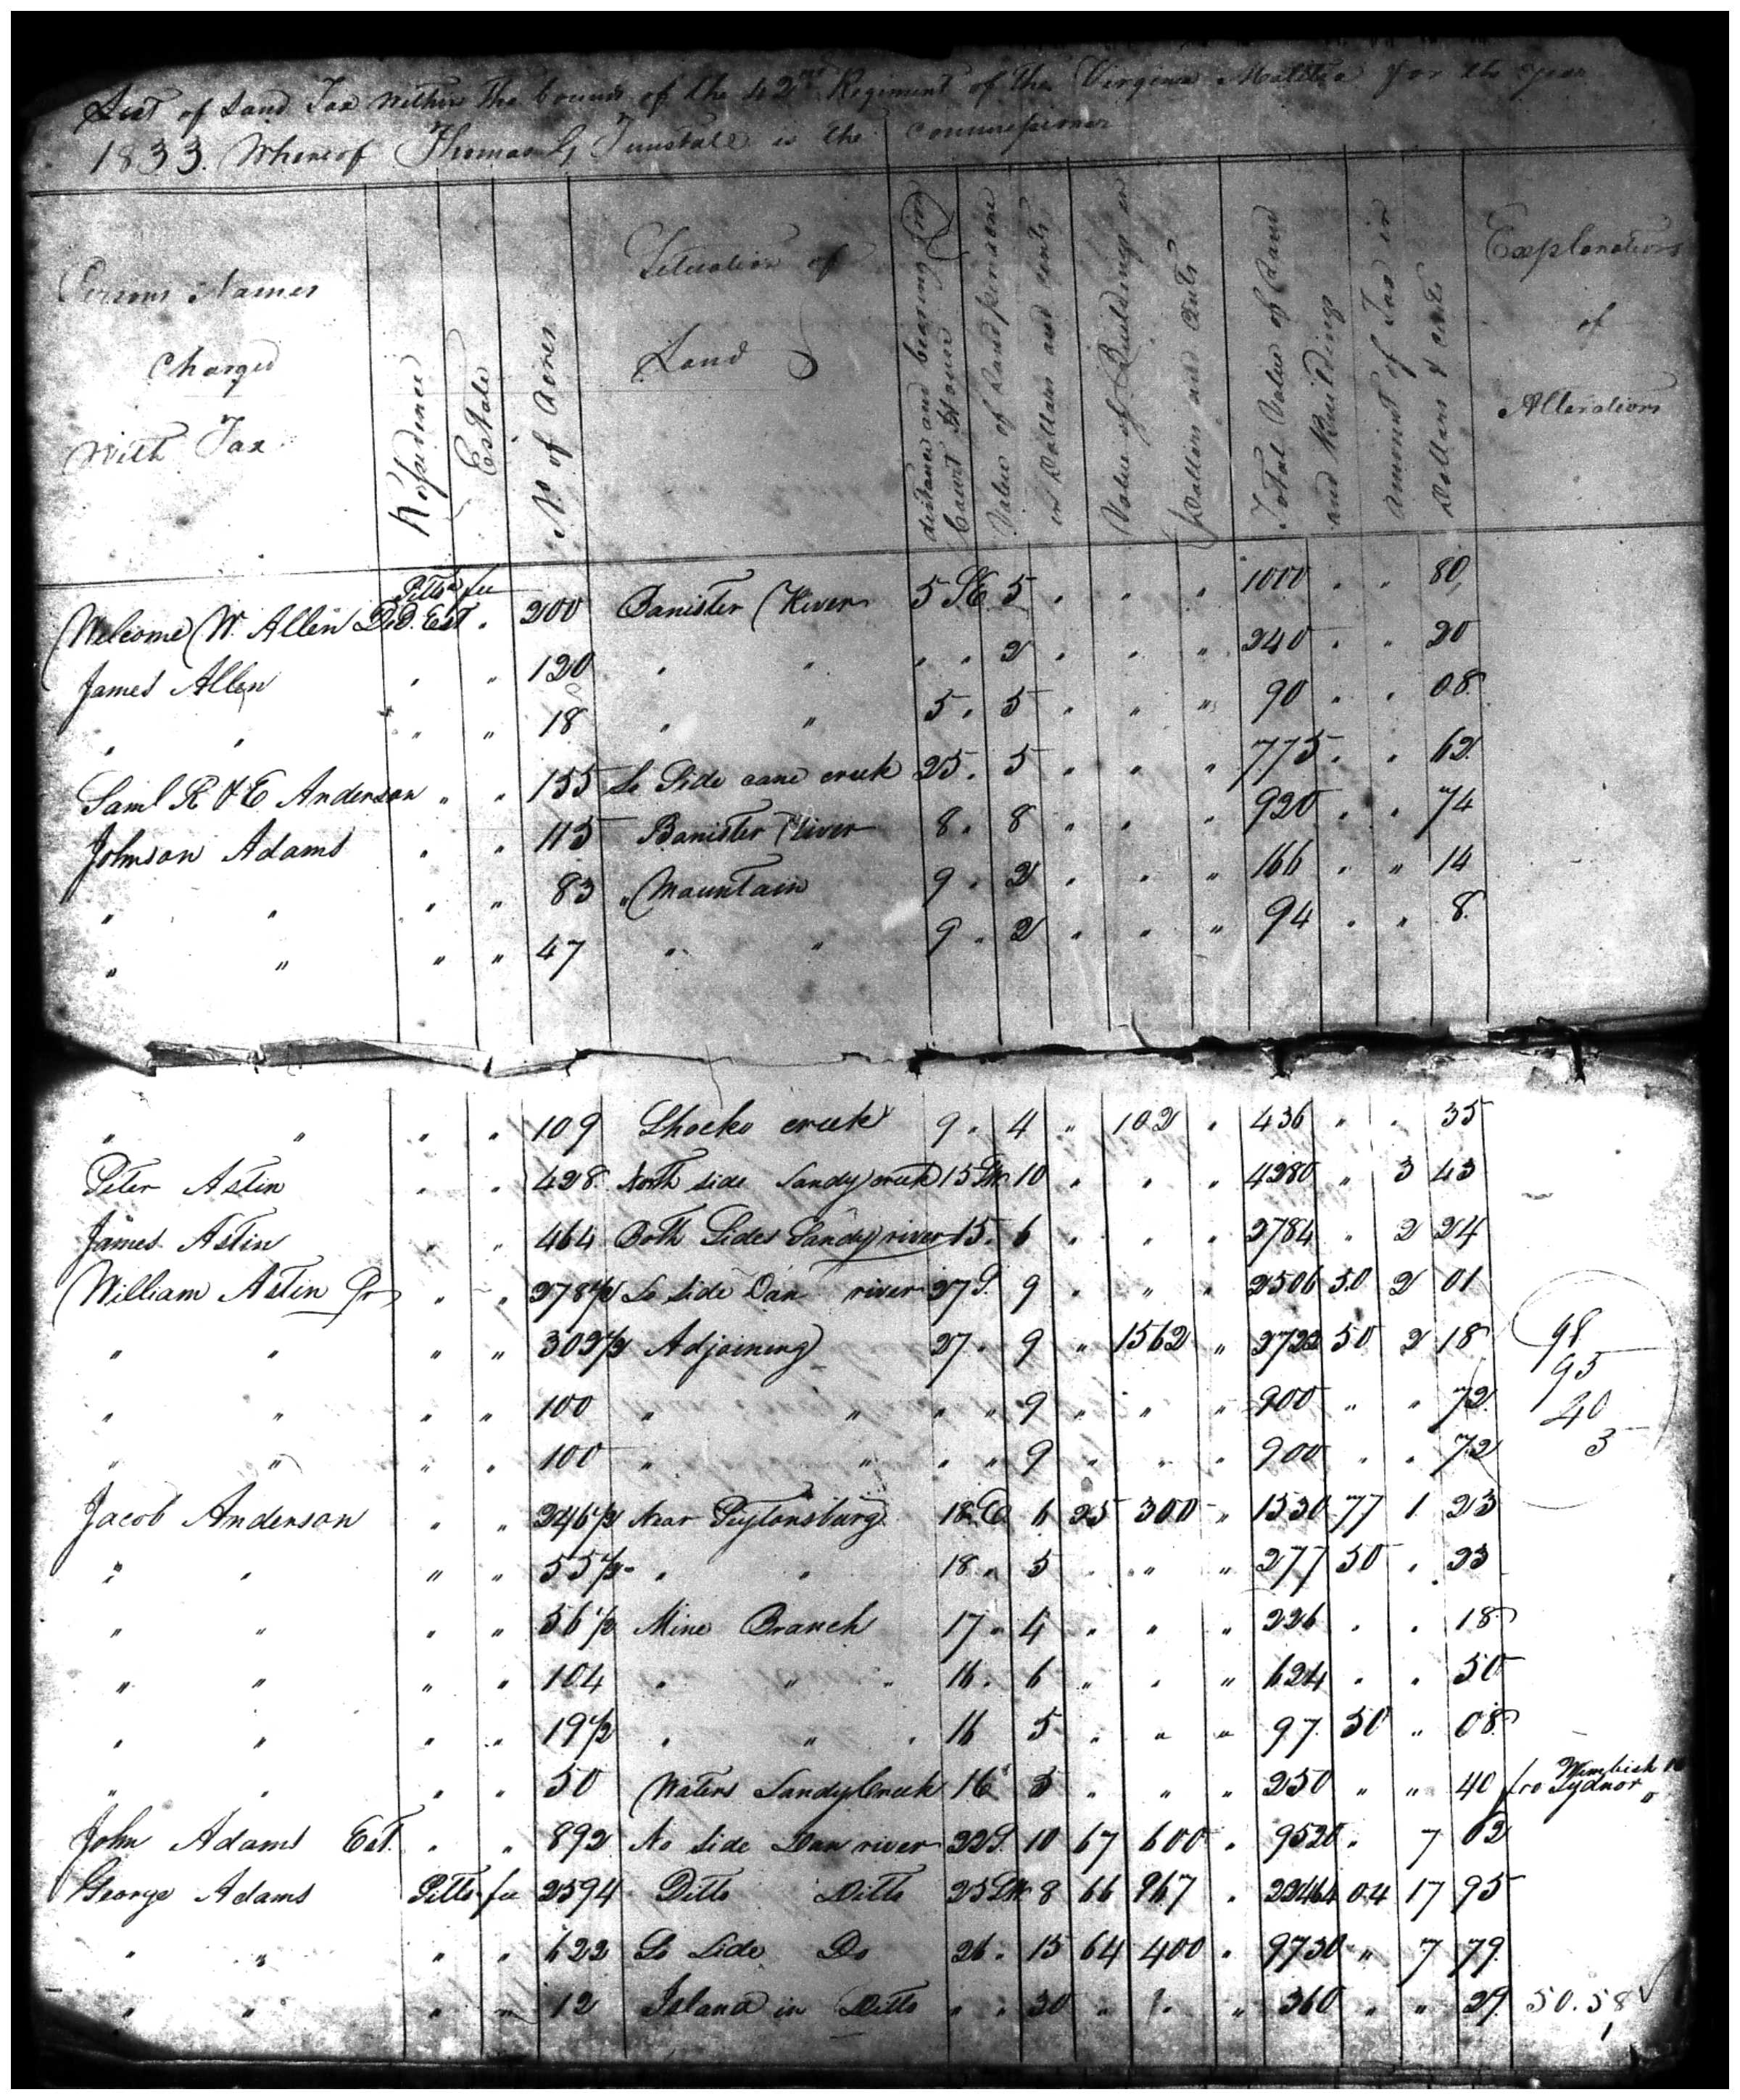 List of Land Tax within the bounds of the 42nd Regiment of the Virginia Malitia for the year
1833. Whereof Thomas G Tunstall is the commissioner
Persons Names Charged With Tax
Residence
Estate
No of Acres
Situation of Land
distance and bearing from Court House
Value of Land per acre in Dollars and cents
Value of Buildings in Dollars and cents
Total Value of Land and Buildings
Amount of Tax in Dollars & cents
Explanations of Alterations
Pitts fee
Welcome W. Allen Ded. Est. " 200 Banister River 5 SE 5 " " " 1000 " " 80
James Allen " " 120 " " " " 2 " " " 240 " " 20
" " " " 18 " " 5 " 5 " " " 90 " " 08
Saml R & E Anderson " " 155 So Side cane creek 25 " 5 " " " 775 " " 62
Johnson Adams " " 115 Banister River 8 " 8 " " " 920 " " 74
" " " " 83 " Mountain 9 " 2 " " " 166 " " 14
" " " " 47 " " 9 " 2 " " " 94 " " 8
" " " " 109 Shocko creek 9 " 4 " 102 " 436 " " 35
Peter Astin " " 428 North side Sandy creek 15 SW 10 " " " 4280 " 3 43
James Astin " " 464 Both Sides Sandy river 15 " 6 " " " 2784 " 2 24
William Astin Sr " " 278 1/2 So side Dan river 27 S. 9 " " " 2506 50 2 01
" " " " 302 1/2 Adjoining 27 " 9 " 1562 " 2722 50 2 18
" " " " 100 " " " " 9 " " " 900 " " 72
" " " " 100 " " " " 9 " " " 900 " " 72
98
95
40
3
Jacob Anderson " " 246 1/2 Near Peytonsburg 18 E 6 25 300 " 1530 77 1 23
" " " " 55 1/2 " " 18 " 5 " " " 277 50 " 23
" " " " 56 1/2 Mine Branch 17 " 4 " " " 226 " " 18
" " " " 104 " " " 16 " 6 " " " 624 " " 50
" " " " 19 1/2 " " " 16 5 " " " 97 50 " 08
" " " " 50 Waters Sandy Creek 16 " 5 " " " 250 " " 40 fro Wimbish Sydnor
John Adams Est. " " 892 No side Dan river 22 S. 10 67 600 " 9520 " 7 62
George Adams Pitts fee 2594 Ditto Ditto 25 SW 8 66 967 " 22464 04 17 95
" " " " 622 So Side Do 26 " 15 64 400 " 9730 " 7 79
" " " " 12 Island in Ditto " " 30 " " " 360 " " 29 50.58